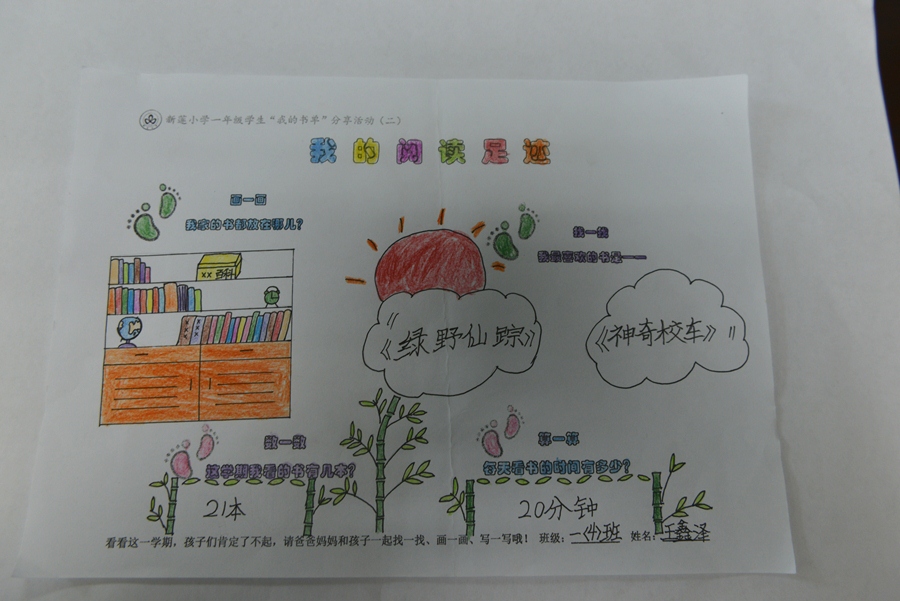 新莲小学一年级学生“我的书单”分享活动（二）
我的阅读足迹
画一画
我家的书都放在哪儿？
找一找
我最喜欢的书是——
××百科
《绿野仙踪》
《神奇校车》
数一数
这学期我看的书有几本？
算一算
每天看书的时间有多少？
21本
20分钟
看看这一学期，孩子们肯定了不起，请爸爸妈妈和孩子一起找一找、画一画、写一写哦！ 班级：一（4）班 姓名：王鑫泽